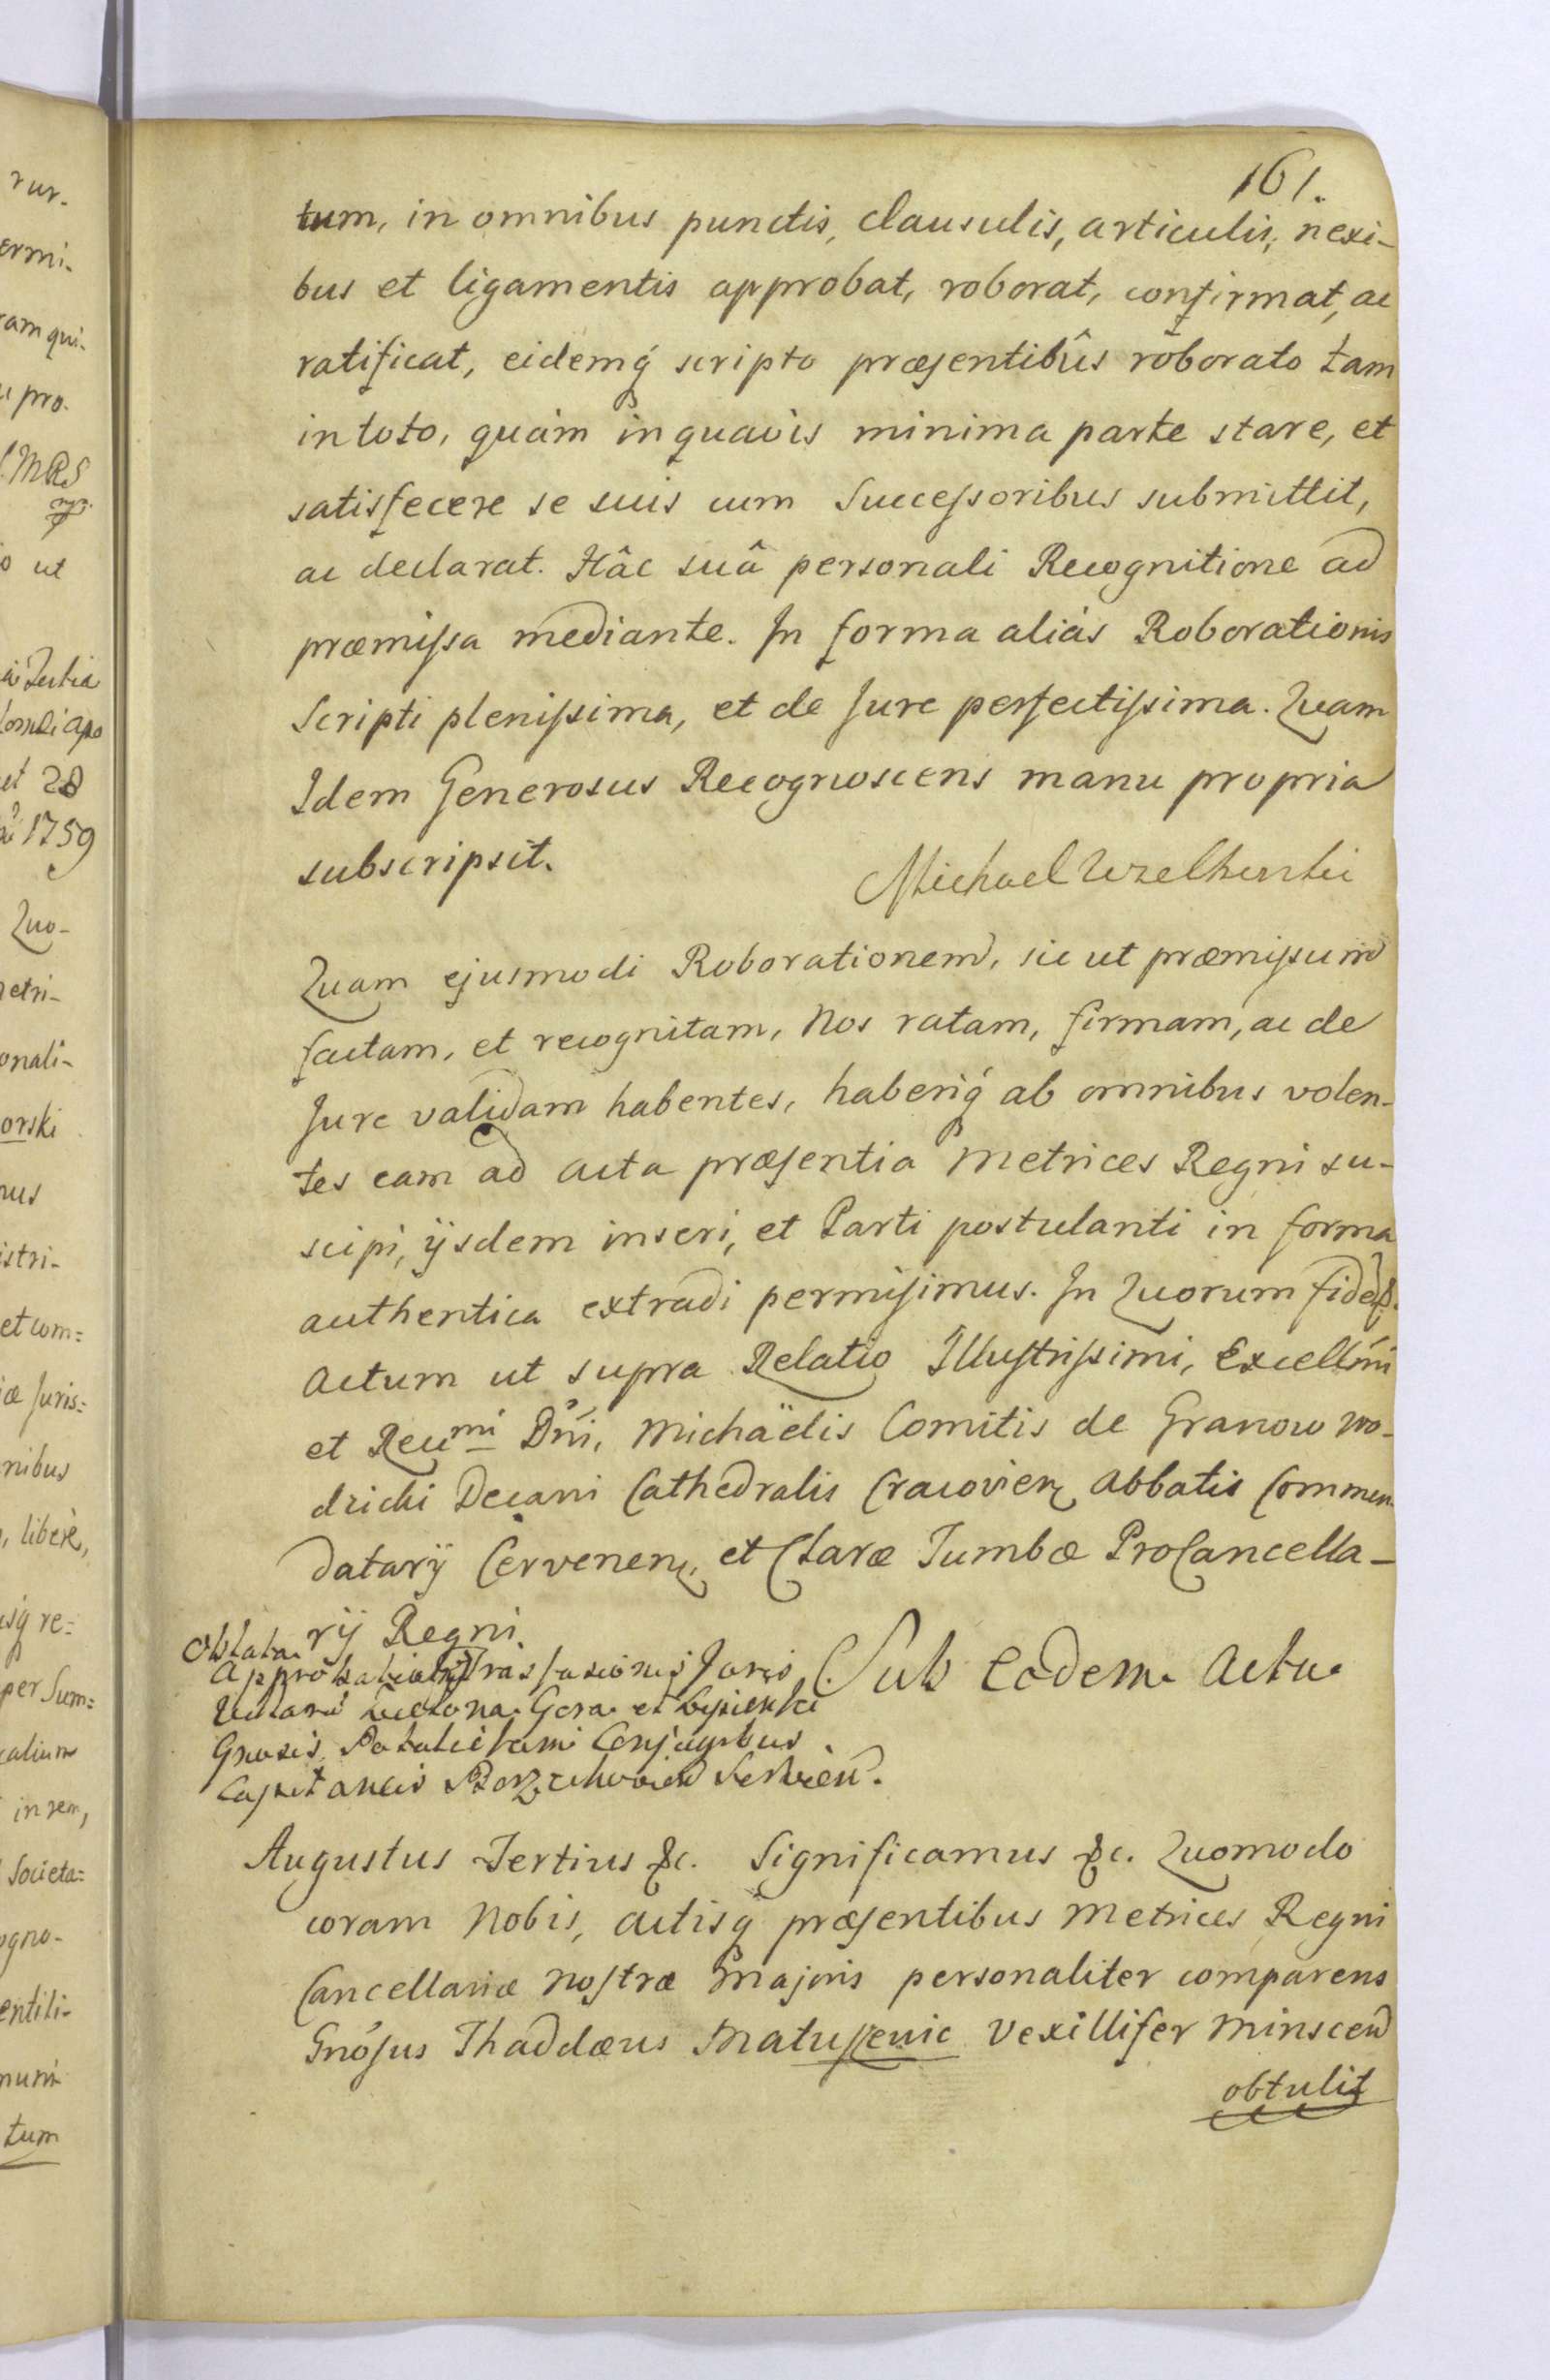 161.
tum, in omnibus punctis, clausulis, articulis, nexi-
bus et ligamentis approbat, roborat, confirmat, ac
ratificat, eidemq́ scripto præsentibûs roborato tam
in toto, quàm in quavis minima parte stare, et
satisfecere se suis cum Successoribus submittit,
ac declarat. Hâc suâ personali Recognitione ad
præmissa mediante. In forma aliàs Roborationis
Scripti plenissima, et de Jure perfectissima. Quam
Idem Generosus Recognoscens manu propria
subscripsit.
Michael
Quam ejusmodi Roborationem, sic ut præmissum
factam, et recognitam, Nos ratam, firmam, ac de
Jure validam habentes, haberiq́ ab omnibus volen-
tes eam ad acta præsentia Metrices Regni su-
scipi, ijsdem inseri, et Parti postulanti in forma
authentica extradi permisimus. In Quorum fidem.
Actum ut supra Relatio Illustrissimi, Excellmi
et Reumi Dni, Michäelis Comitis de Granow Wo-
dzicki Decani Cathedralis Cracovien Abbatis Commen-
datarij Cervenen, et Claræ Tumbæ ProCancella-
rij Regni.
Oblata
Approbationis Juris
Gora et
Gnosis Potulickami Conjugibus
Capitaneis Borzechovien Servien.
Sub Eodem Actu
Augustus Tertius &c. Significamus &c. Quomodo
coram Nobis, actisq́ præsentibus Metrices Regni
Cancellariæ Nostræ Majoris personaliter comparens
Gnosus Thaddæus Matussevic Vexillifer Minscen
obtulit
rur-
ermi-
ram qui-
pro-
MRS
ut
et 28
1759
Quo-
etri-
onali-
orski
nus
istri-
et com=
Juris=
nibus
liberè,
isq re=
per Sum=
calium
in rem,
Societa=
ogno-
entili-
tum